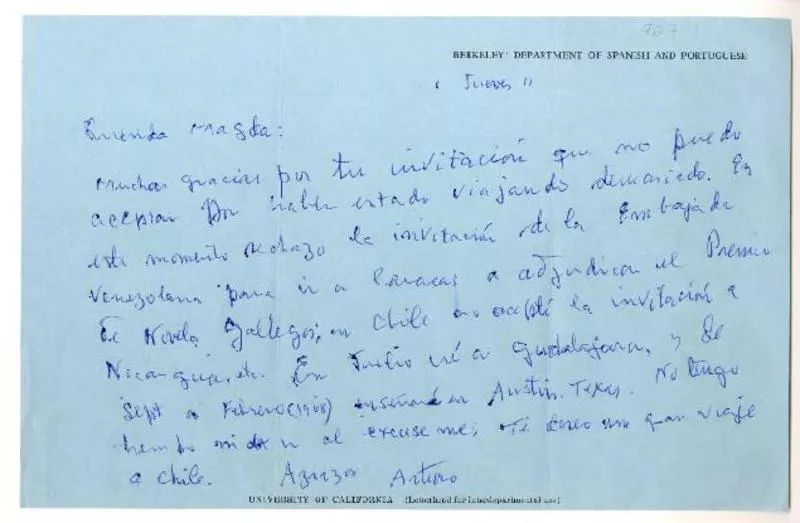 967
BERKELEY: DEPARTMENT OF SPANISH AND PORTUGUESE
"Jueves"
Querida Magda:
Muchas gracias por tu invitación que no puedo
aceptar por haber estado viajando demasiado. En
este momento rechazo la invitación de la Embajada
Venezolana para ir a Caracas a adjudicar el Premio
de Novela Gallegos; en Chile no acepté la invitación a
Nicaragua, etc. En Julio iré a Guadalajara, y de
Sept a Febrero (1968) enseñaré en Austin, Texas. No tengo
tiempo ni de ir al excuse me. Te deseo un gran viaje
a Chile. Abrazos Arturo
UNIVERSITY OF CALIFORNIA—(Letterhead for interdepartmental use)